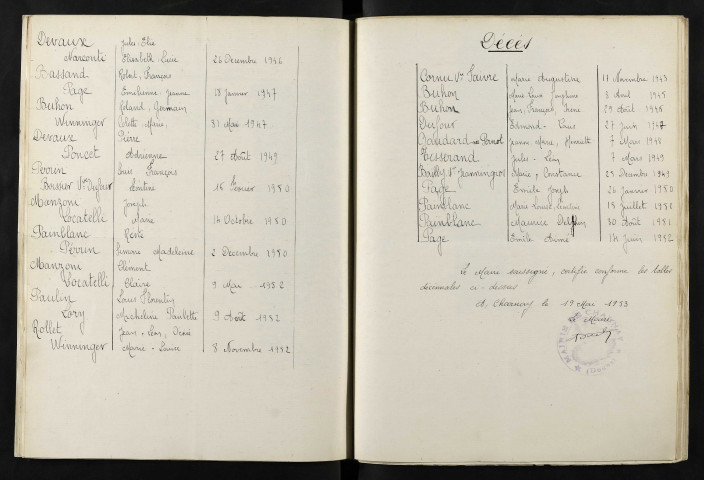 Devaux Jules, Elie
Narconti Elisabeth, Lucie 26 Decembre 1946
Bassand François
Page Emilienne, Jeanne 18 Janvier 1947
Buhon Roland, Germain
Winninger Colette, Marie, 31 Mai 1947
Devaux Pierre
Poncet Adrienne 27 Août 1949
Perrin Louis François
Bessier Vve Dufour 15 Février 1950
Manzoni Joseph
Locatelli Marie 14 Octobre 1950
Painblanc
Perrin Simone Madeleine 2 Decembre 1950
Manzoni Clément
Locatelli Claire 9 Mai 1952
Paulin Louis Florentin
Lory Micheline Paulette 9 Août 1952
Rollet Jean-Léon, René
Winninger Marie-Louise 8 Novembre 1952
Décès
Cornu Vve Faivre Marie Augustine 11 Novembre 1943
Buhon Marie 3 Avril 1945
Buhon Jean, François, 29 Août 1945
Dufour Edmond-Louis 27 Juin 1947
Gaudard née Pernot Jeanne Marie, Henriette 7 Mars 1948
Tesserand Jules-Léon 7 Mars 1949
Bailly Vve Jeanningros Marie, Constance 23 Decembre 1949
Page Emile Joseph 26 Janvier 1950
Painblanc Marie Louise 13 Juillet 1950
Painblanc Maurice Delphin 30 Août 1951
Page Emile Aimé 14 Juin 1952
Le Maire soussigné, certifie conforme les tables
décennales ci-dessus
A Charnay le 19 Mai 1953
Le Maire
MAIRIE DE CHARNAY (Doubs)